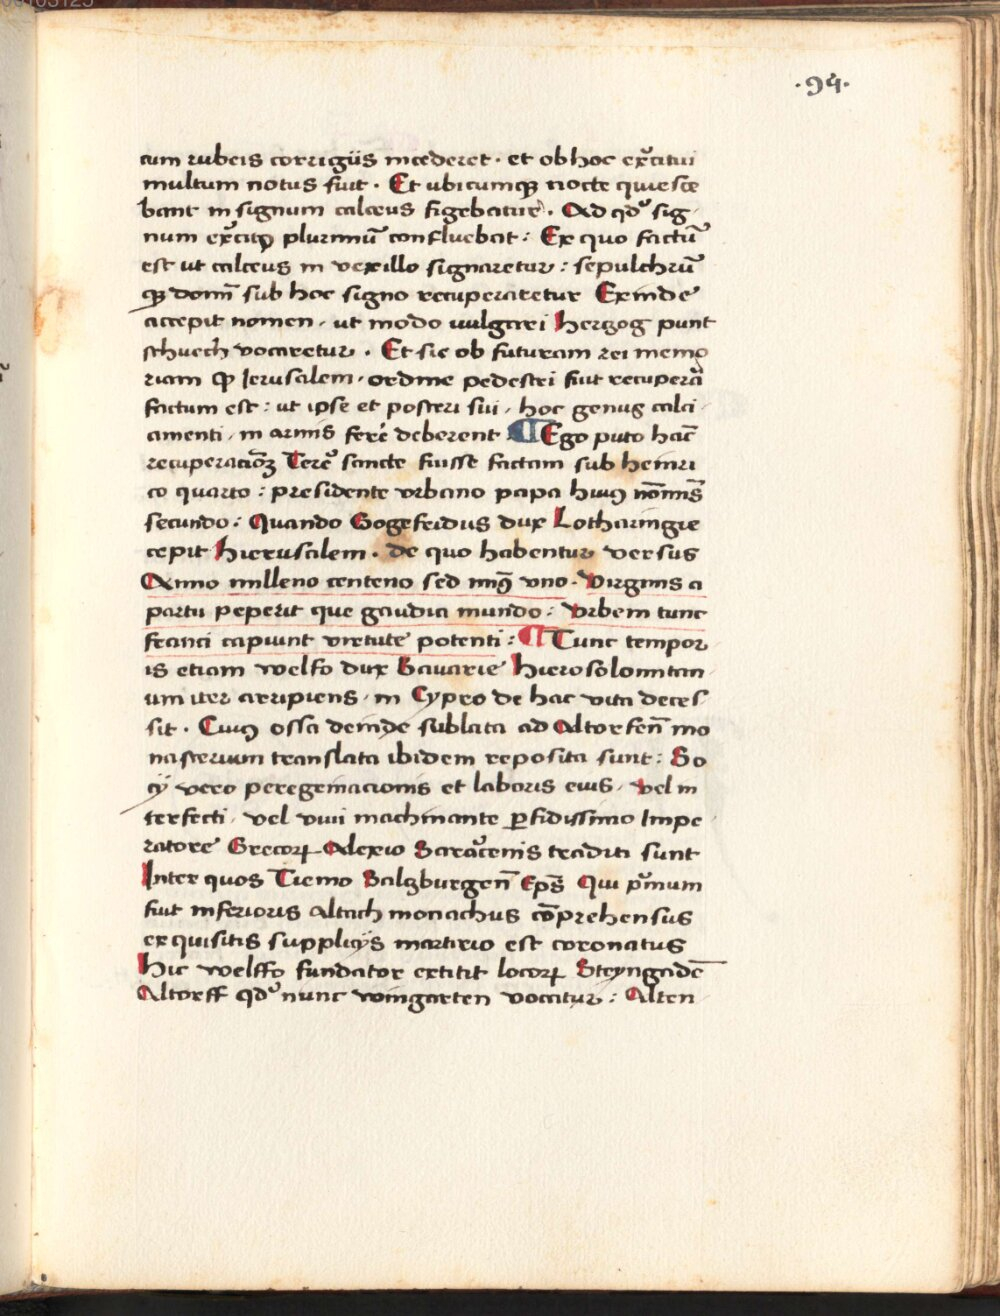 ·94·
cum rubeis corrigiis incederet · et ob hoc exercitui
multum notus fuit · Et ubicumqꝫ nocte quiesce
bant in signum calceus figebatur · Ad qd sig
num exercitꝯ plurimū confluebat : Ex quo factū
est ut calceus in vexillo signaretur : sepulchrū
qꝫ domī sub hoc signo recuperaretur Exinde
accepit nomen · ut modo uulgari Herczog punt
schuech vocaretur · Et sic ob futuram rei memo
riam ꝙ Ierusalem · ordine pedestri fuit recuperā
factum est : ut ipse et posteri sui · hoc genus calci
amenti · in armis ferre deberent ¶ Ego puto hāc
recuperacioꝫ Terre sancte fuisse factam sub heinri
co quarto : presidente vrbano papa huiꝯ noīnis
secundo : Quando Gogefridus dux Lotharingie
cepit Hierusalem · de quo habentur versus
Anno milleno centeno sed minꝯ vno · Virginis a
partu peperit que gaudia mundo : Vrbem tunc
franci capiunt virtute potenti : ¶ Tunc tempor
is etiam welfo dux Bavarie Hierosolomitan
um iter arripiens · in Cypro de hac vita deces
sit · Cuiꝯ ossa deinde sublata ad Altorfen̄ mo
nasterium translata ibidem reposita sunt : So
cij vero peregrinacionis et laboris eius · vel in
terfecti · vel viui machinante ꝑfidissimo Impe
ratore Grecoꝝ Alexio Saracenis traditi sunt
Inter quos Tiemo Salczburgen̄ Ep̄s Qui pͥmum
fuit inferioris altach monachus cōprehensus
exquisitis supplicijs martirio est coronatus
Hic welffo fundator extitit locoꝝ Steyngadē
Altorff qd nunc wingarten vocatur : Alten